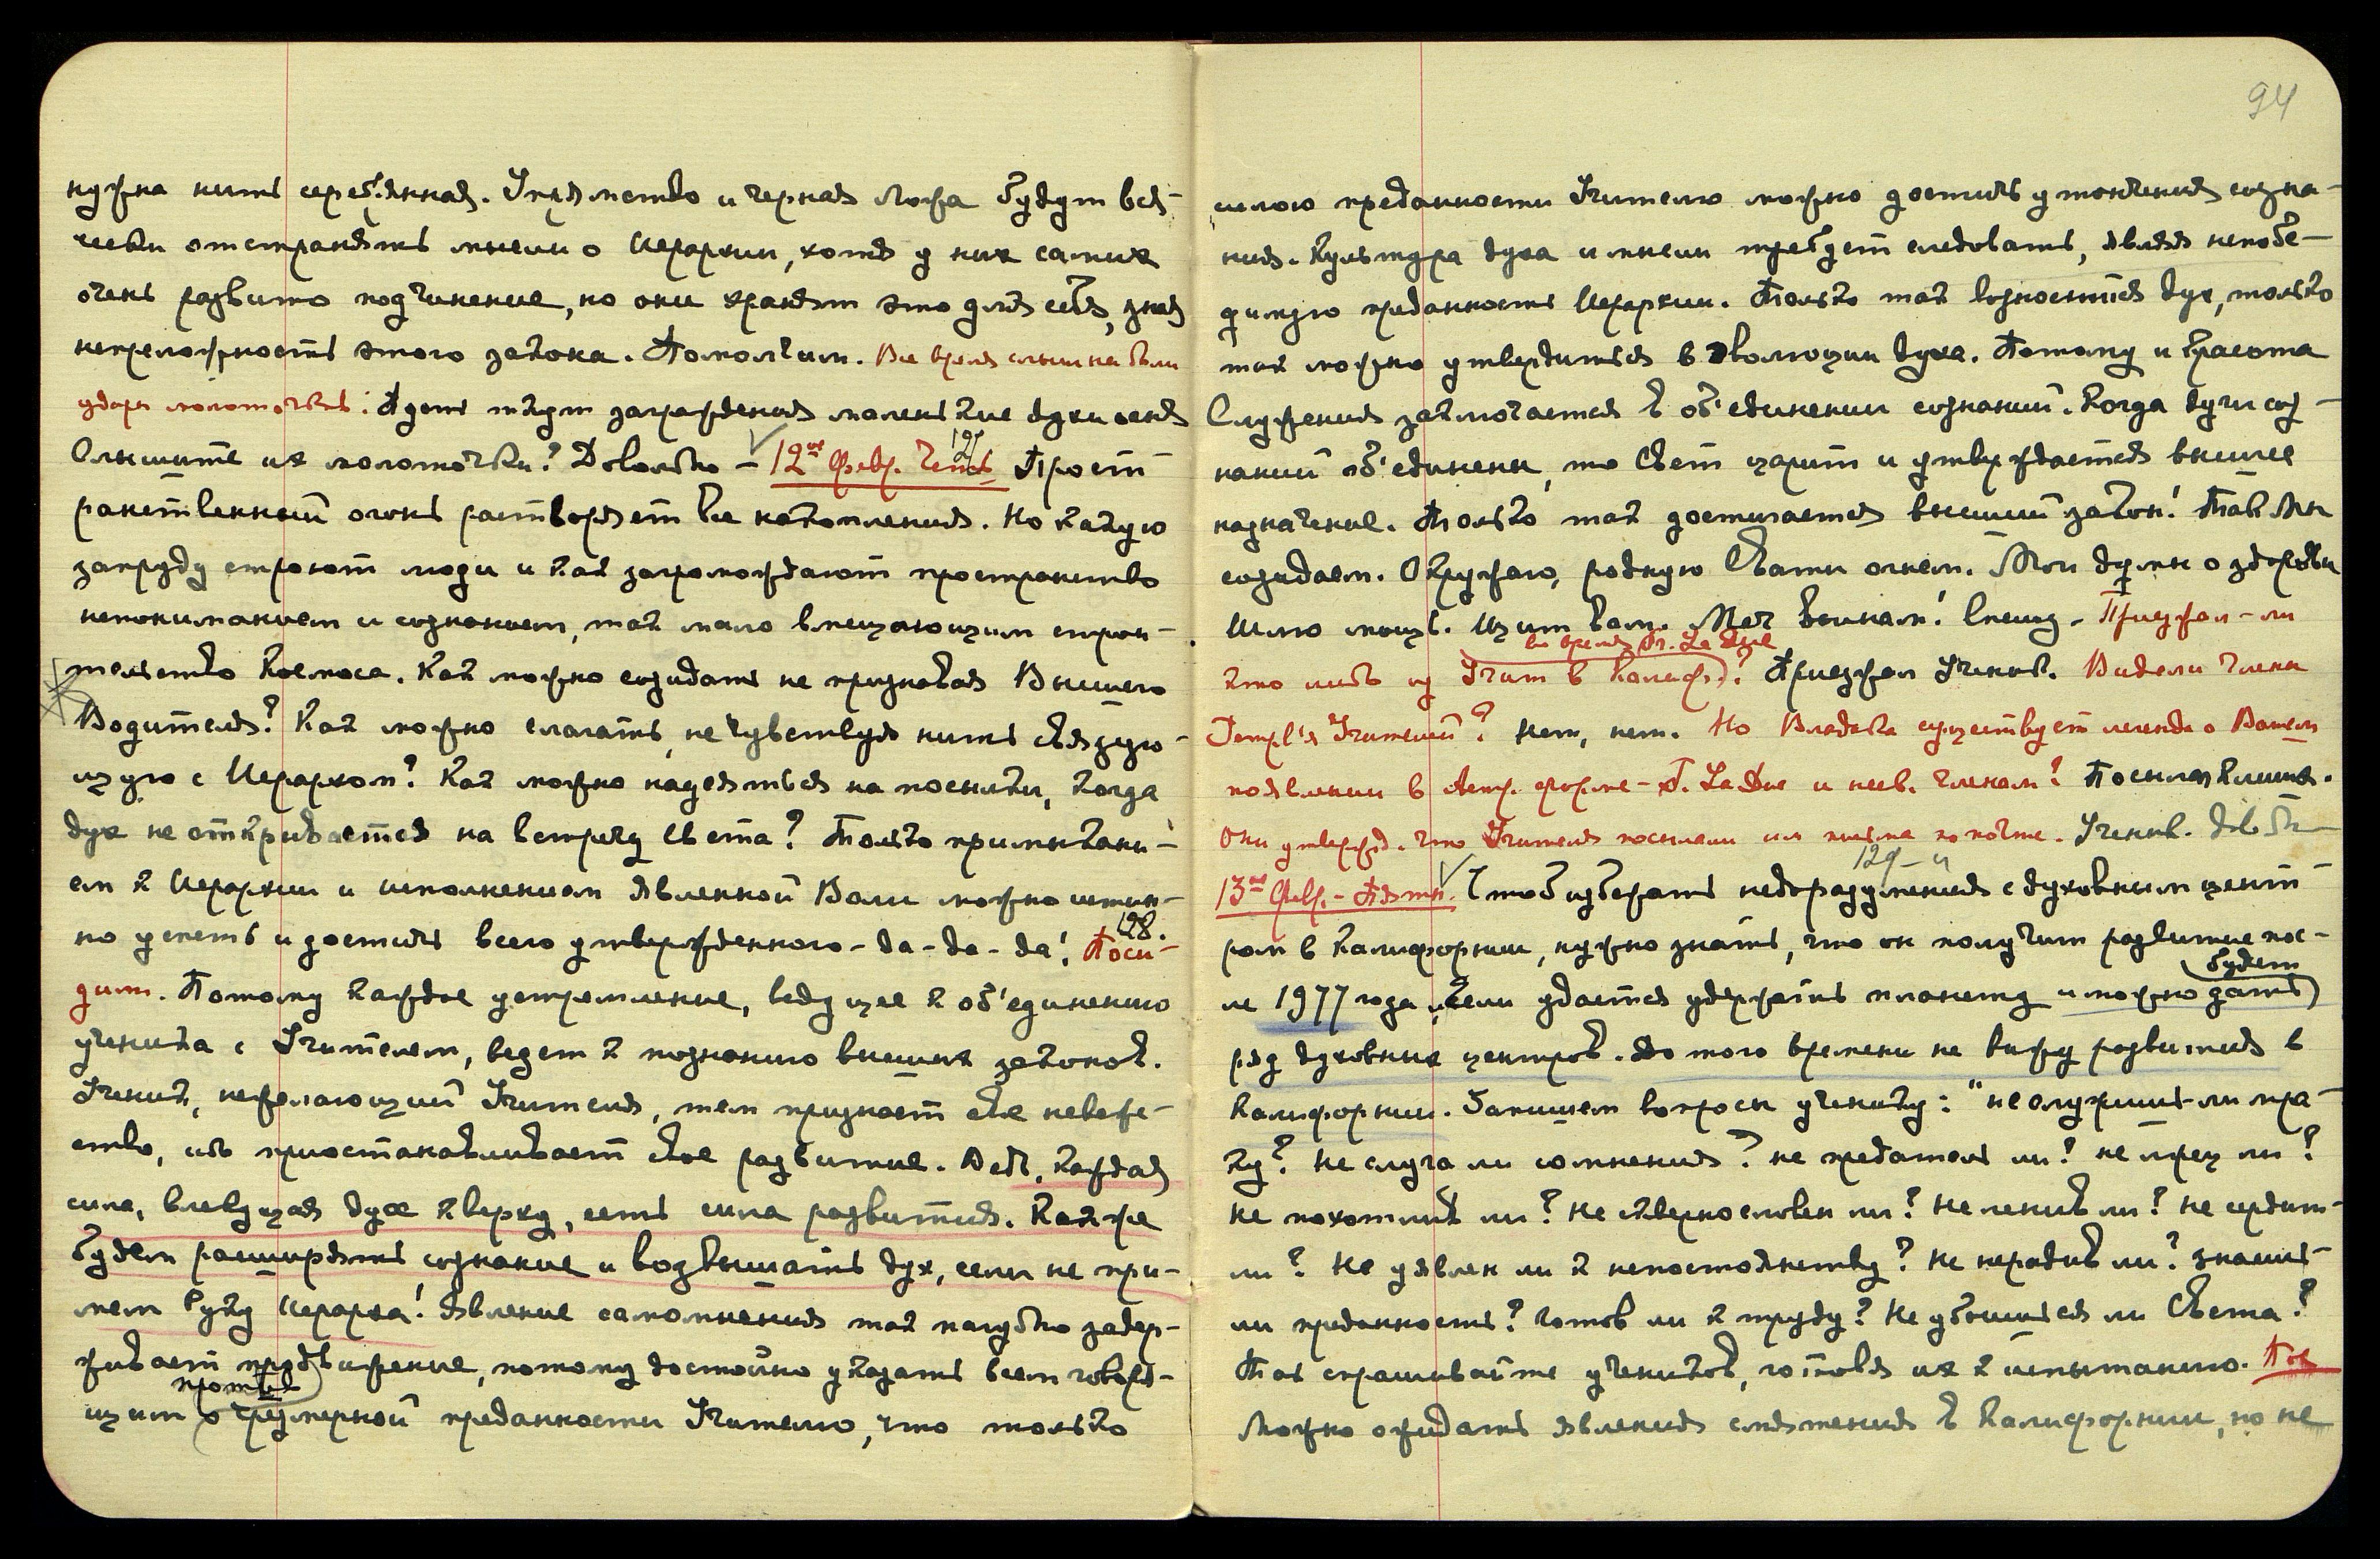 нужна нить серебрянная. Упрямство и черная ложа будут вся-
чески отстранять мысли о Иерархии, хотя у них самих
очень развито подчинение, но они хранят это для себя, зная
непреложность этого закона. Помолчим. Все время слышны были
удары молоточков: ткут заграждения маленькие духи огня
Слышите их молоточки? Довольно – 12ое февр. Четв. 127 Прост-
ранственный огонь растворяет все накопления. Но какую
запруду строют люди и как загромождают пространство
непониманием и сознанием, так мало вмещающим строи-
тельство Космоса. Как можно созидать не признавая Высшего
Водителя? Как можно слагать, не чувствуя нить связую-
щую с Иерархом? Как можно надеяться на посылки, когда
дух не открывается на встречу света? Только примыкани-
ем к Иерархии и исполнением явленной Воли можно истин-
но успеть и достичь всего утвержденного – да-да-да! 128. Поси-
дим. Потому каждое устремление, ведущее к об'единению
ученика с Учителем, ведет к познанию высших законов.
Ученик, нежелающий Учителя, тем признает свое невеже-
ство, ибо приостанавливает свое развитие. Ведь, каждая
сила, влекущая дух кверху, есть сила развития. Как же
будем расширять сознание и возвышать дух, если не при-
мем Руку Иерарха! Явление самомнения так пагубно задер-
живает продвижение, потому достойно указать всем говоря-
щим о (против) чрезмерной преданности Учителю, что только
94
силою преданности Учителю можно достичь утончения созна-
ния. Культура духа и мысли требует следовать, являя непобе-
димую преданность Иерархии. Только так возносится дух, только
так можно утвердиться в эволюции духа. Потому и Красота
Служения заключается в об'единении сознаний. Когда духи соз-
наний об'единены, то Свет царит и утверждается высшее
назначение. Только так достигается высший закон! Так Мы
созидаем. Окружаю, родную Свати огнем. Мои думы о здоровьи
Шлю мощь. Щит вам. Меч воинам! Спешу – Приезжал-ли
во время Dr. La Due
кто либо из Учит в Калиф.? Приезжал Ученик. Видели члены
Templ'я Учителей? Нет, нет. Но Владыка существует легенда о Вашем
появлении в Астр. форме – Д. La Due и неск. членам? Посылаю клише.
Они утвержд. что Учителя посылали им письма по почте. Ученик. Довольно
13ое Февр. – Пятн. 129 – и Чтоб избежать недоразумения с духовным цент-
ром в Калифорнии, нужно знать, что он получит развитие пос-
ле 1977 года, если удается удержать планету и можно (будет) дать
ряд духовных центров. До того времени не вижу развития в
Калифорнии. Запишем вопросы ученику: "не служишь-ли мра-
ку? Не слуга ли сомнения? не предатель ли? не лжец ли?
не похотлив ли? Не сквернословен ли? Не ленив ли? не сердит-
ли? Не уявлен ли к непостоянству? Не нерадив ли? знаешь-
ли преданность? Готов ли к труду? Не убоишься ли Света?
Так спрашивайте учеников, готовя их к испытанию. Пос
Можно ожидать явления смятения в Калифорнии, но не